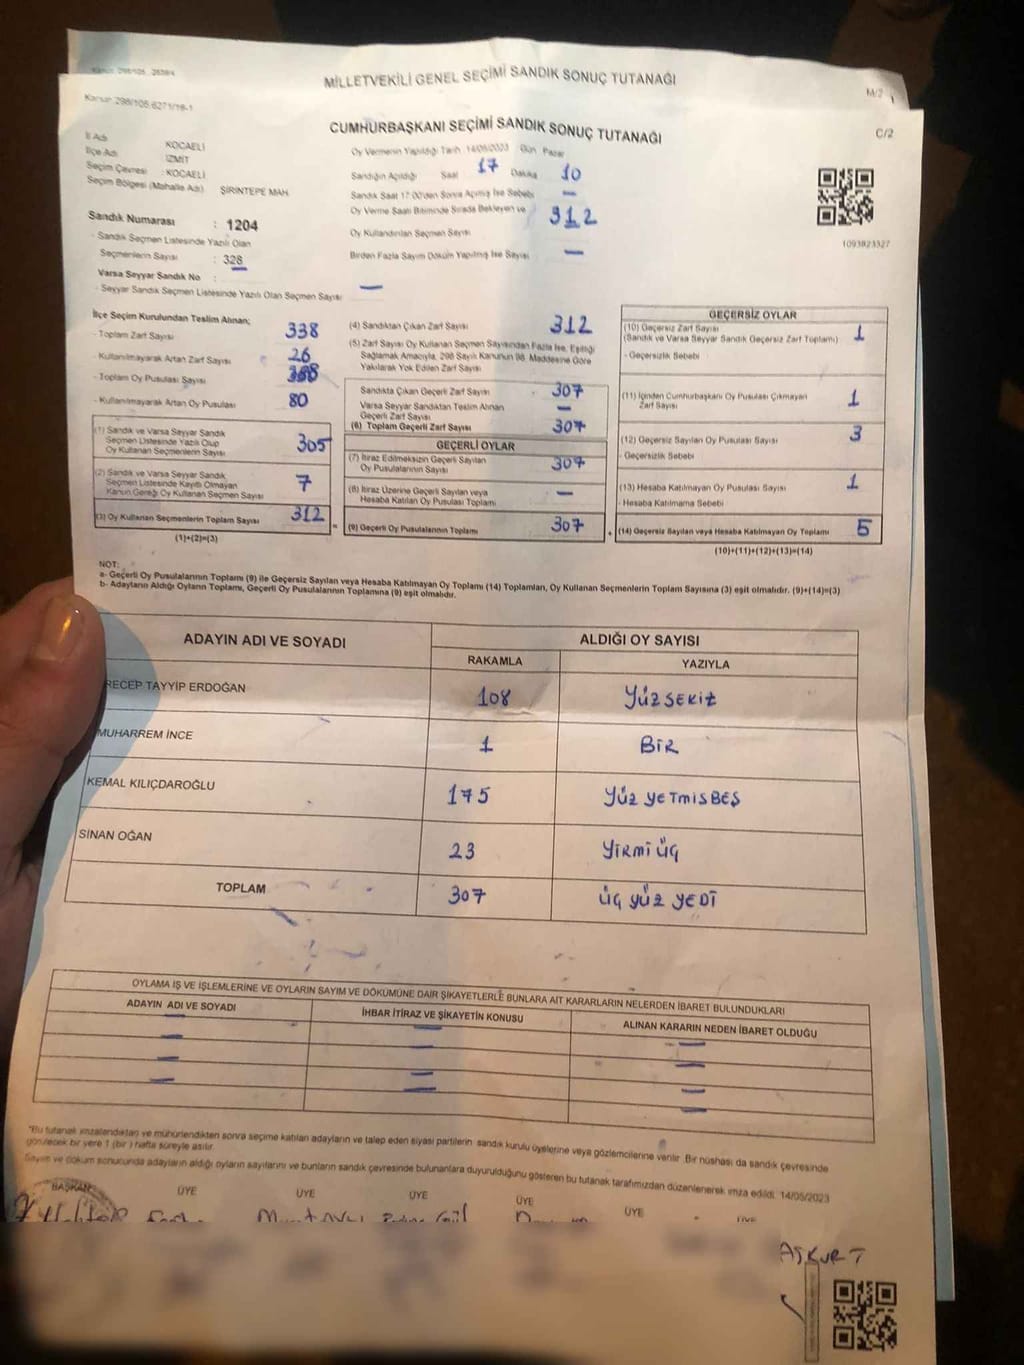 MİLLETVEKİLİ GENEL SEÇİMİ SANDIK SONUÇ TUTANAĞI
M/2
Kanun 298/105,6271/16-1
CUMHURBAŞKANI SEÇİMİ SANDIK SONUÇ TUTANAĞI
C/2
İl Adı : KOCAELİ
İlçe Adı : İZMİT
Seçim Çevresi : KOCAELİ
Seçim Bölgesi (Mahalle Adı) ŞİRİNTEPE MAH
Sandık Numarası : 1204
- Sandık Seçmen Listesinde Yazılı Olan
Seçmenlerin Sayısı : 328
Varsa Seyyar Sandık No :
- Seyyar Sandık Seçmen Listesinde Yazılı Olan Seçmen Sayısı —
Oy Vermenin Yapıldığı Tarih 14/05/2023 Gün Pazar
Sandığın Açıldığı Saat 17 Dakika 10
Sandık Saat 17:00'den Sonra Açılmış İse Sebebi —
Oy Verme Saati Bitiminde Sırada Bekleyen ve
Oy Kullandırılan Seçmen Sayısı 312
Birden Fazla Sayım Döküm Yapılmış İse Sayısı —
1093823327
İlçe Seçim Kurulundan Teslim Alınan;
- Toplam Zarf Sayısı 338
- Kullanılmayarak Artan Zarf Sayısı 26
- Toplam Oy Pusulası Sayısı
- Kullanılmayarak Artan Oy Pusulası 80
(1) Sandık ve Varsa Seyyar Sandık
Seçmen Listesinde Yazılı Olup
Oy Kullanan Seçmenlerin Sayısı 305
(2) Sandık ve Varsa Seyyar Sandık
Seçmen Listesinde Kayıtlı Olmayan
Kanun Gereği Oy Kullanan Seçmen Sayısı 7
(3) Oy Kullanan Seçmenlerin Toplam Sayısı 312
(1)+(2)=(3)
(4) Sandıktan Çıkan Zarf Sayısı 312
(5) Zarf Sayısı Oy Kullanan Seçmen Sayısından Fazla İse, Eşitliği
Sağlamak Amacıyla, 298 Sayılı Kanunun 98. Maddesine Göre
Yakılarak Yok Edilen Zarf Sayısı
Sandıkta Çıkan Geçerli Zarf Sayısı 307
Varsa Seyyar Sandıktan Teslim Alınan
Geçerli Zarf Sayısı —
(6) Toplam Geçerli Zarf Sayısı 307
GEÇERLİ OYLAR
(7) İtiraz Edilmeksizin Geçerli Sayılan
Oy Pusulalarının Sayısı 307
(8) İtiraz Üzerine Geçerli Sayılan veya
Hesaba Katılan Oy Pusulası Toplamı —
(9) Geçerli Oy Pusulalarının Toplamı 307
GEÇERSİZ OYLAR
(10) Geçersiz Zarf Sayısı 1
(Sandık ve Varsa Seyyar Sandık Geçersiz Zarf Toplamı)
- Geçersizlik Sebebi
(11) İçinden Cumhurbaşkanı Oy Pusulası Çıkmayan
Zarf Sayısı 1
(12) Geçersiz Sayılan Oy Pusulası Sayısı 3
- Geçersizlik Sebebi
(13) Hesaba Katılmayan Oy Pusulası Sayısı 1
- Hesaba Katılmama Sebebi
(14) Geçersiz Sayılan veya Hesaba Katılmayan Oy Toplamı 5
(10)+(11)+(12)+(13)=(14)
NOT:
a- Geçerli Oy Pusulalarının Toplamı (9) ile Geçersiz Sayılan veya Hesaba Katılmayan Oy Toplamı (14) Toplamları, Oy Kullanan Seçmenlerin Toplam Sayısına (3) eşit olmalıdır. (9)+(14)=(3)
b- Adayların Aldığı Oyların Toplamı, Geçerli Oy Pusulalarının Toplamına (9) eşit olmalıdır.
ADAYIN ADI VE SOYADI ALDIĞI OY SAYISI
RAKAMLA YAZIYLA
RECEP TAYYİP ERDOĞAN 108 YÜZ SEKİZ
MUHARREM İNCE 1 BİR
KEMAL KILIÇDAROĞLU 175 YÜZ YETMİSBEŞ
SİNAN OĞAN 23 YİRMİ ÜÇ
TOPLAM 307 ÜÇ YÜZ YEDİ
OYLAMA İŞ VE İŞLEMLERİNE VE OYLARIN SAYIM VE DÖKÜMÜNE DAİR ŞİKAYETLERLE BUNLARA AİT KARARLARIN NELERDEN İBARET BULUNDUKLARI
ADAYIN ADI VE SOYADI İHBAR İTİRAZ VE ŞİKAYETİN KONUSU ALINAN KARARIN NEDEN İBARET OLDUĞU
*Bu tutanak imzalandıktan ve mühürlendikten sonra seçime katılan adayların ve talep eden siyasi partilerin sandık kurulu üyelerine veya gözlemcilerine verilir. Bir nüshası da sandık çevresinde
görülecek bir yere 1 (bir) hafta süreyle asılır.
Sayım ve döküm sonucunda adayların aldığı oyların sayılarını ve bunların sandık çevresinde bulunanlara duyurulduğunu gösteren bu tutanak tarafımızdan düzenlenerek imza edildi. 14/05/2023
BAŞKAN ÜYE ÜYE ÜYE ÜYE ÜYE ÜYE
AŞKURT